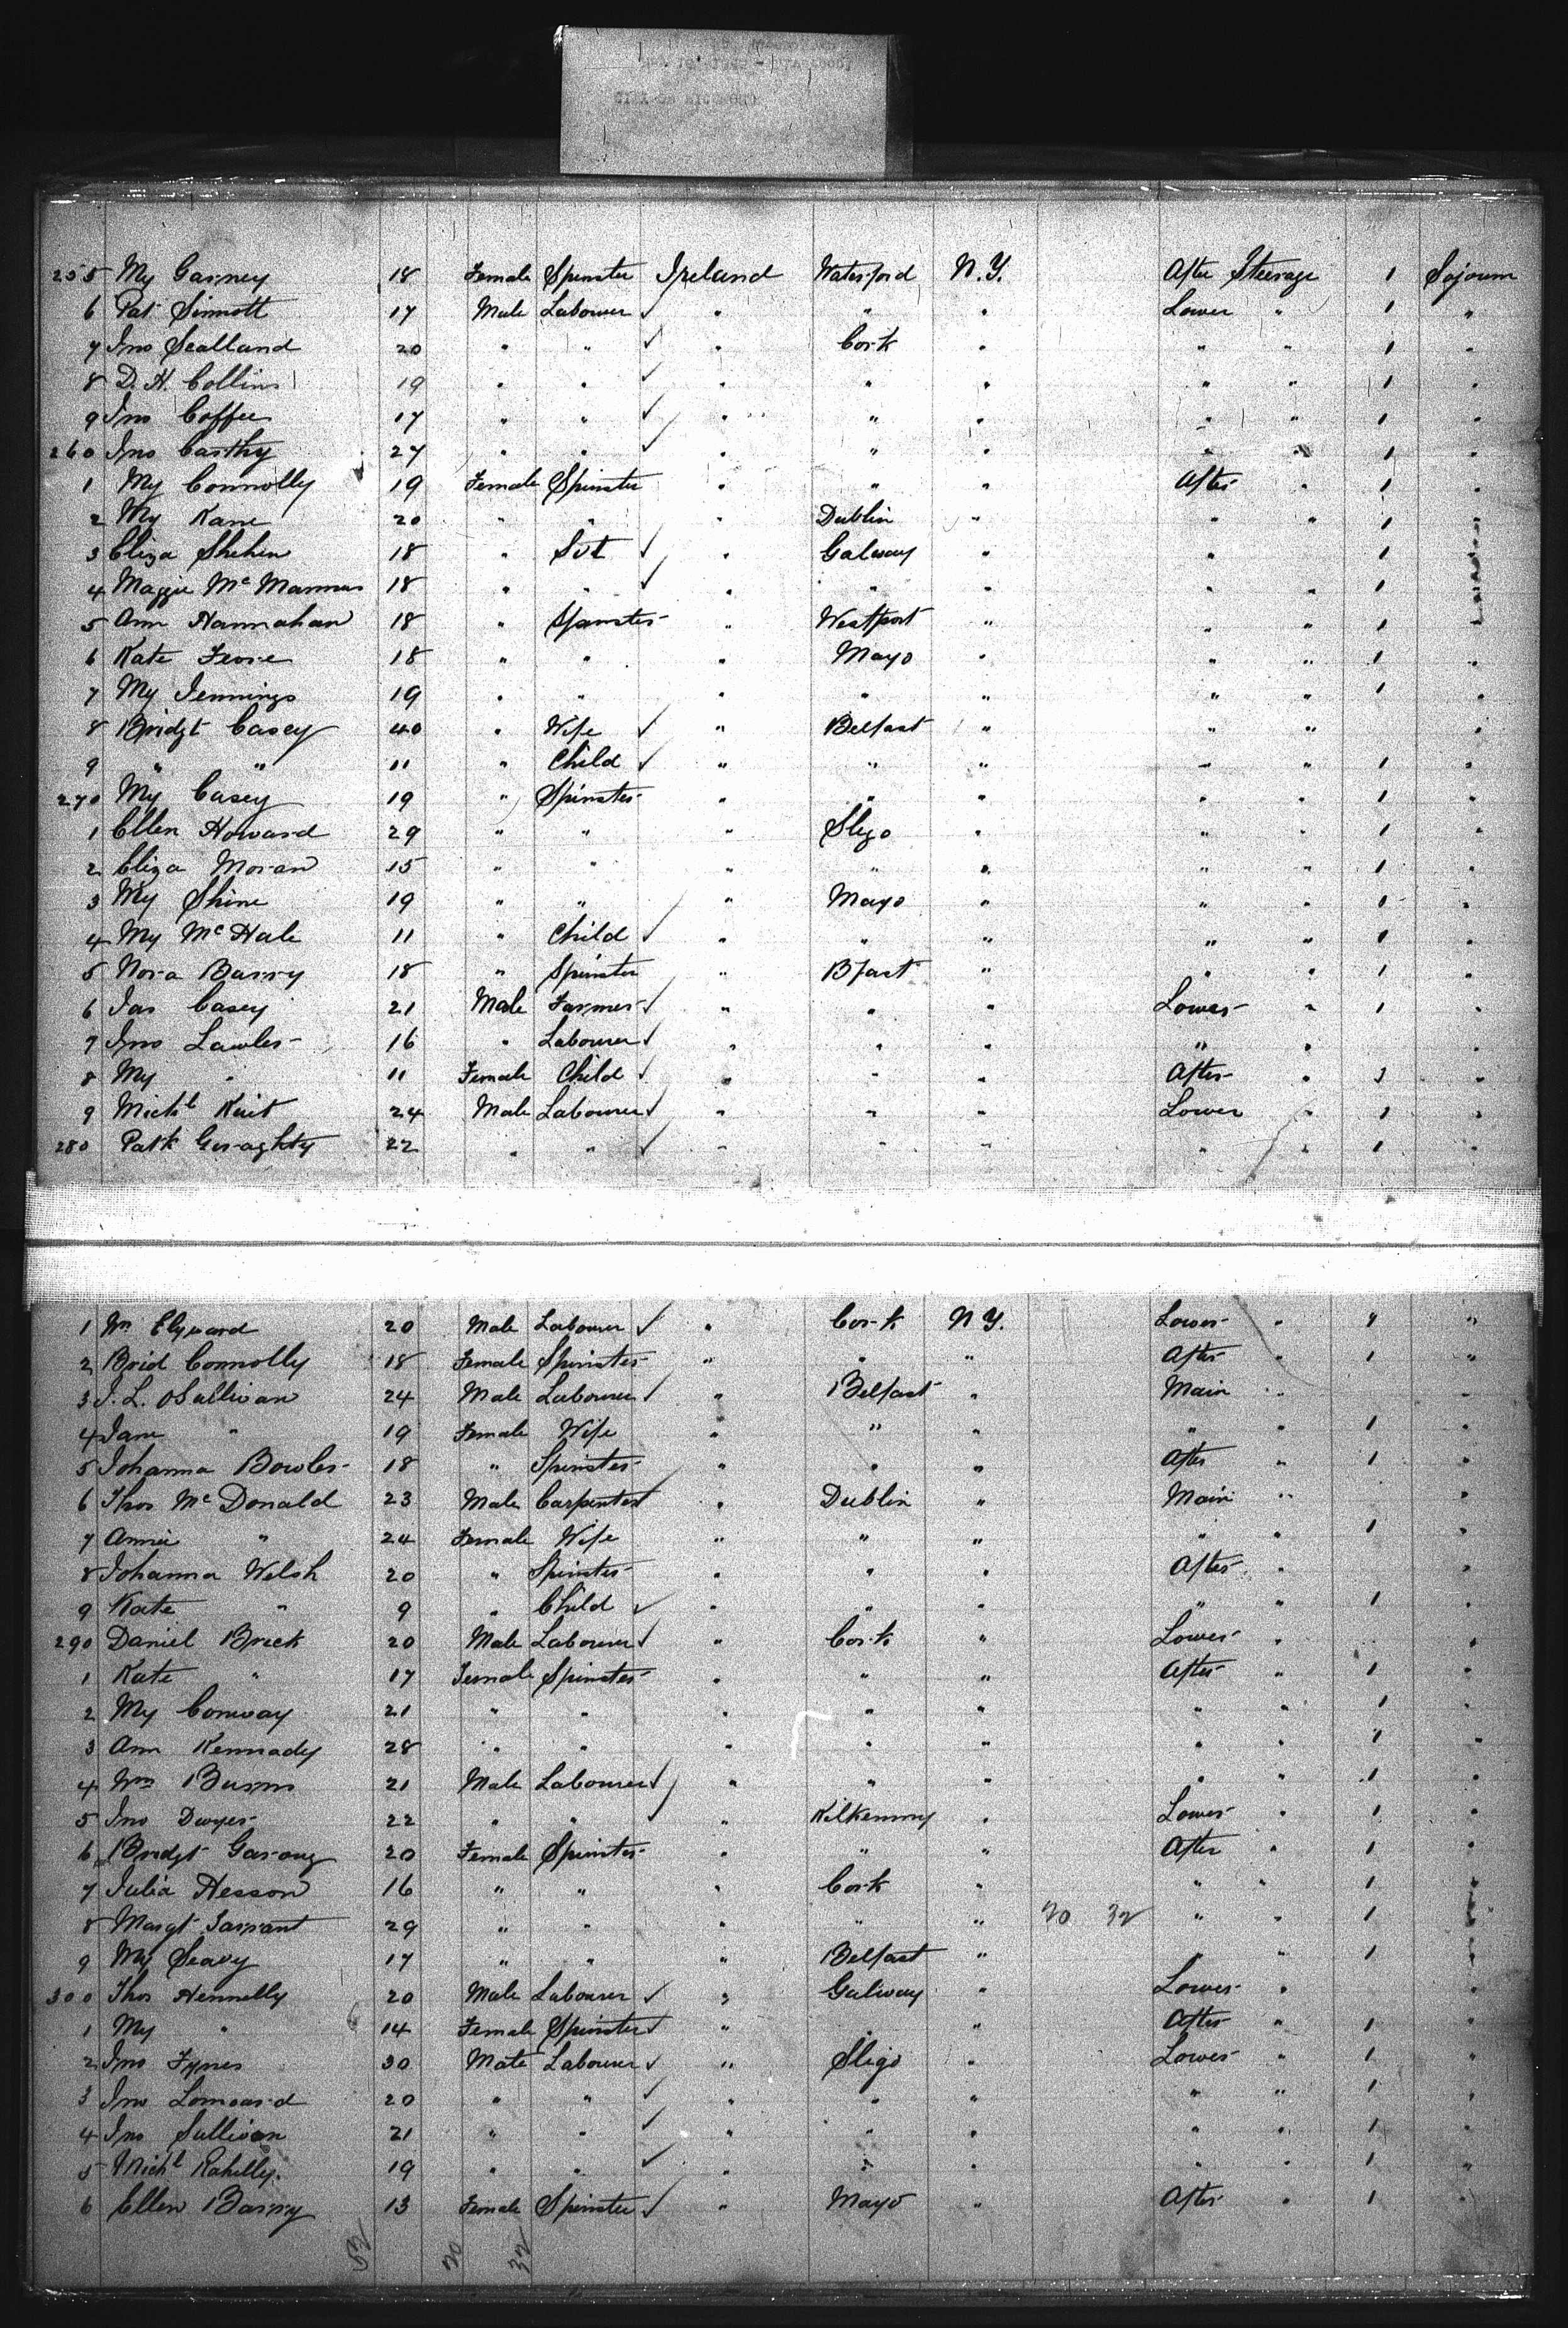 255 My Garney 18 Female Spinster Ireland Waterford N.Y. After Steerage 1 Sojourn
6 Pat Sinnott 17 Male Labourer ✓ " " " Lower " 1 "
7 Jno Scalland 20 " " ✓ " Cork " " " 1 "
8 D. H. Collins 19 " " ✓ " " " " " 1 "
9 Jno Coffee 17 " " ✓ " " " " " 1 "
260 Jno Carthy 27 " " ✓ " " " " " 1 "
1 My Connolly 19 Female Spinster " " " After " 1 "
2 My Kane 20 " " " Dublin " " " 1 "
3 Eliza Shehen 18 " Svt ✓ " Galway " " " 1 "
4 Maggie McMannus 18 " " ✓ " " " " " 1 "
5 Ann Hannahan 18 " Spinster " Westport " " " 1 "
6 Kate 18 " " " Mayo " " " 1 "
7 My Jennings 19 " " " " " " " 1 "
8 Bridgt Casey 40 " Wife ✓ " Belfast " " " "
9 " " 11 " Child ✓ " " " " " 1 "
270 My Casey 19 " Spinster " " " " " 1 "
1 Ellen Howard 29 " " " Sligo " " " 1 "
2 Eliza Moran 15 " " " " " " " 1 "
3 My Shine 19 " " " Mayo " " " 1 "
4 My McHale 11 " Child ✓ " " " " " 1 "
5 Nora Barry 18 " Spinster " Bfast " " " 1 "
6 Jas Casey 21 Male Farmer ✓ " " " Lower " 1 "
7 Jno Lawler 16 " Labourer ✓ " " " " " "
8 My " 11 Female Child ✓ " " " After " 1 "
9 Michl 24 Male Labourer ✓ " " " Lower " 1 "
280 Patk Geraghty 22 " " ✓ " " " " " 1 "
1 Wm Elguard 20 Male Labourer ✓ " Cork N.Y. Lower " 1 "
2 Brid Connolly 18 Female Spinster " " " After " 1 "
3 J. L. OSullivan 24 Male Labourer ✓ " Belfast " Main " "
4 Jane " 19 Female Wife " " " " " 1 "
5 Johanna Bowler 18 " Spinster " " " After " 1 "
6 Thos McDonald 23 Male Carpenter ✓ " Dublin " Main " "
7 Annie " 24 Female Wife " " " " " 1 "
8 Johanna Welsh 20 " Spinster " " " After " "
9 Kate " 9 " Child ✓ " " " " " 1 "
290 Daniel Brick 20 Male Labourer ✓ " Cork " Lower " "
1 Kate " 17 Female Spinster " " " After " 1 "
2 My Conway 21 " " " " " " " 1 "
3 Ann Kennady 28 " " " " " " " 1 "
4 Wm Burns 21 Male Labourer ✓ " " " " " 1 "
5 Jno Dwyer 22 " " ✓ " Kilkenny " Lower " 1 "
6 Bridgt 20 Female Spinster " " " After " 1 "
7 Julia Hesson 16 " " " Cork " " " 1 "
8 Margt Tarrant 29 " " " " " 20 32 " " 1 "
9 My Seavy 17 " " " Belfast " " " 1 "
300 Thos Hennelly 20 Male Labourer ✓ " Galway " Lower " "
1 My " 14 Female Spinster ✓ " " " After " 1 "
2 Jno Fynes 30 Male Labourer ✓ " Sligo " Lower " 1 "
3 Jno Lomoard 20 " " ✓ " " " " " 1 "
4 Jno Sullivan 21 " " ✓ " " " " " 1 "
5 Michl Rahilly 19 " " ✓ " " " " " 1 "
6 Ellen Barry 13 Female Spinster ✓ " Mayo " After " 1 "
52 20 32